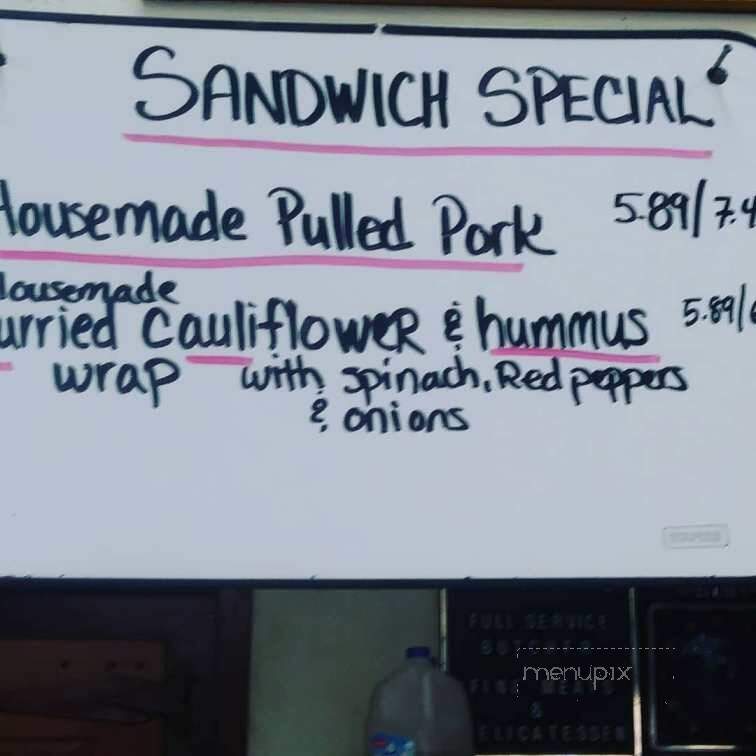 SANDWICH SPECIAL
Housemade Pulled Pork 5.89/7.4
Housemade
urried Cauliflower & hummus 5.89/6
wrap with spinach, Red peppers
& onions
STAPLES
FULL SERVICE
BUTCHER
FINE MEATS
&
ELICATESSEN
menupix